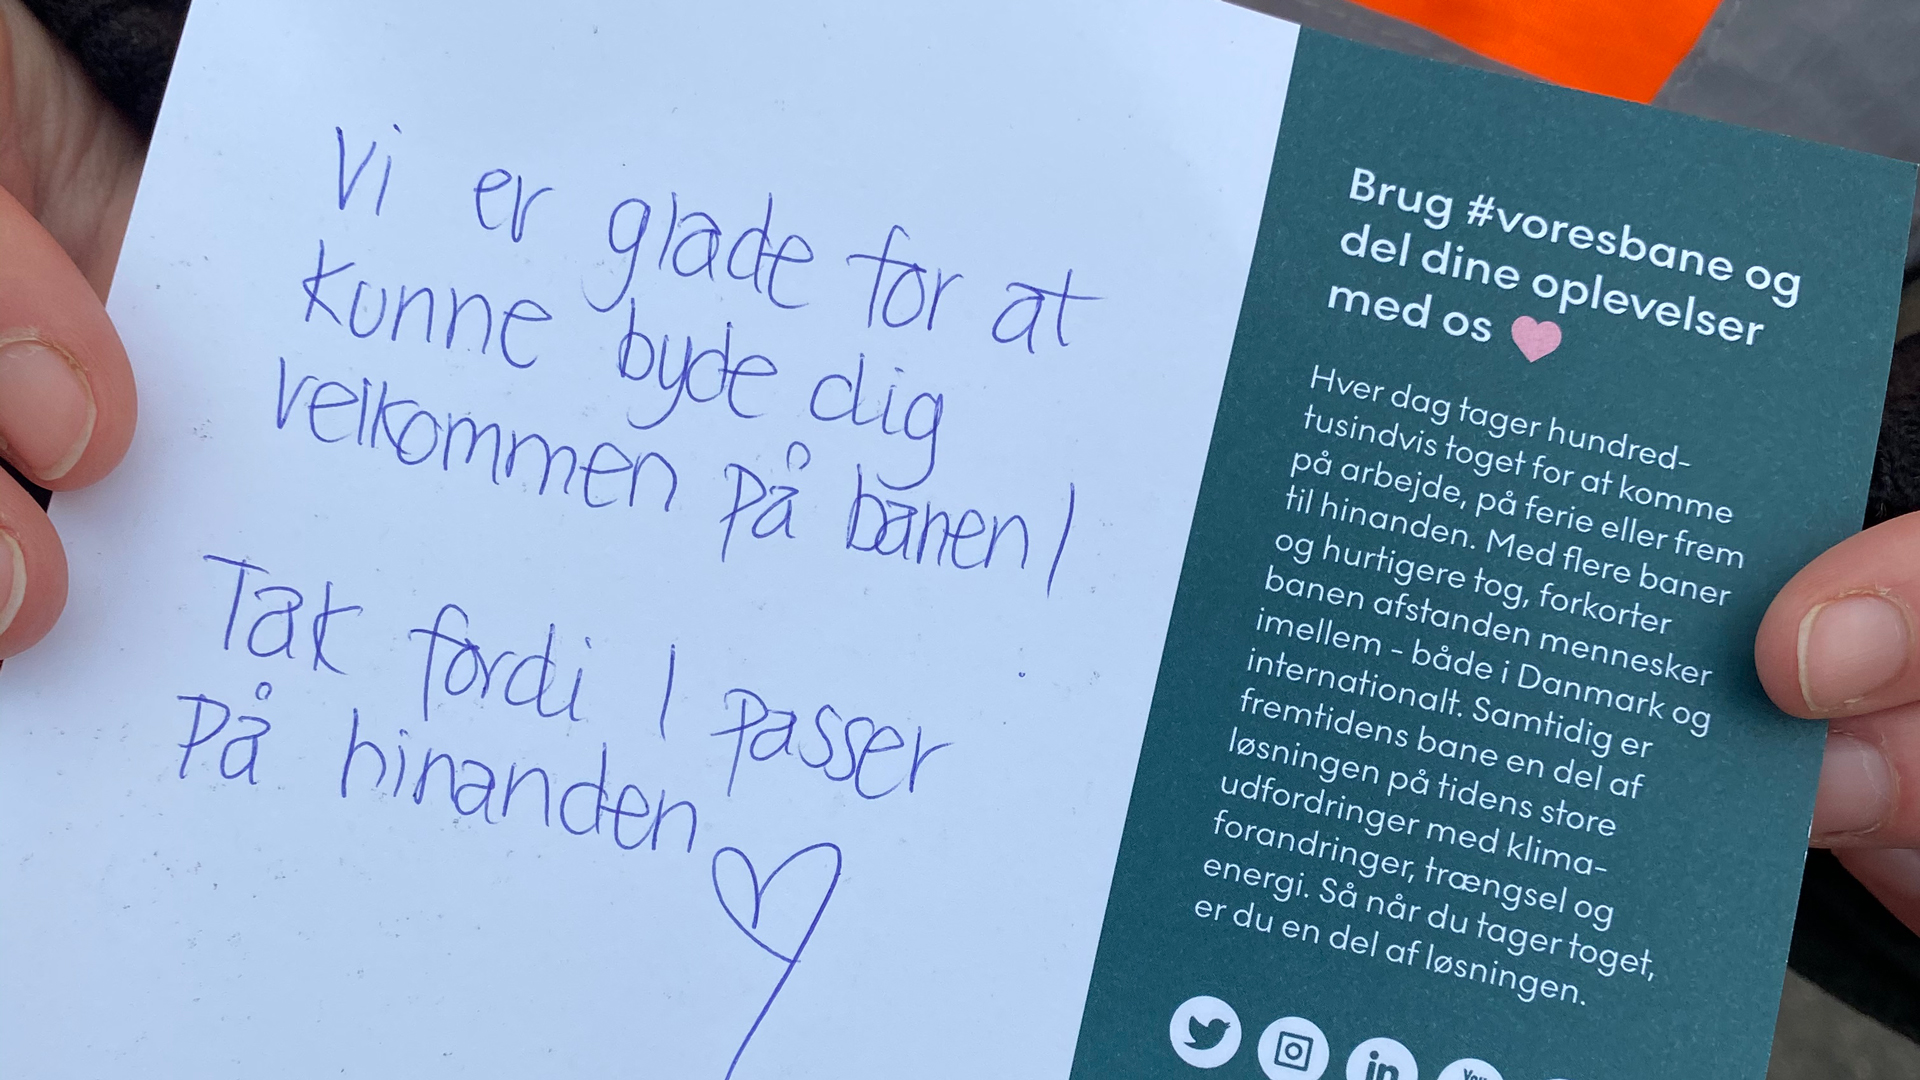 Vi er glade for at
kunne byde dig
velkommen på banen!
Tak fordi I passer
på hinanden
Brug #voresbane og
del dine oplevelser
med os
Hver dag tager hundred-
tusindvis toget for at komme
på arbejde, på ferie eller frem
til hinanden. Med flere baner
og hurtigere tog, forkorter
banen afstanden mennesker
imellem - både i Danmark og
internationalt. Samtidig er
fremtidens bane en del af
løsningen på tidens store
udfordringer med klima-
forandringer, trængsel og
energi. Så når du tager toget,
er du en del af løsningen.
in
You